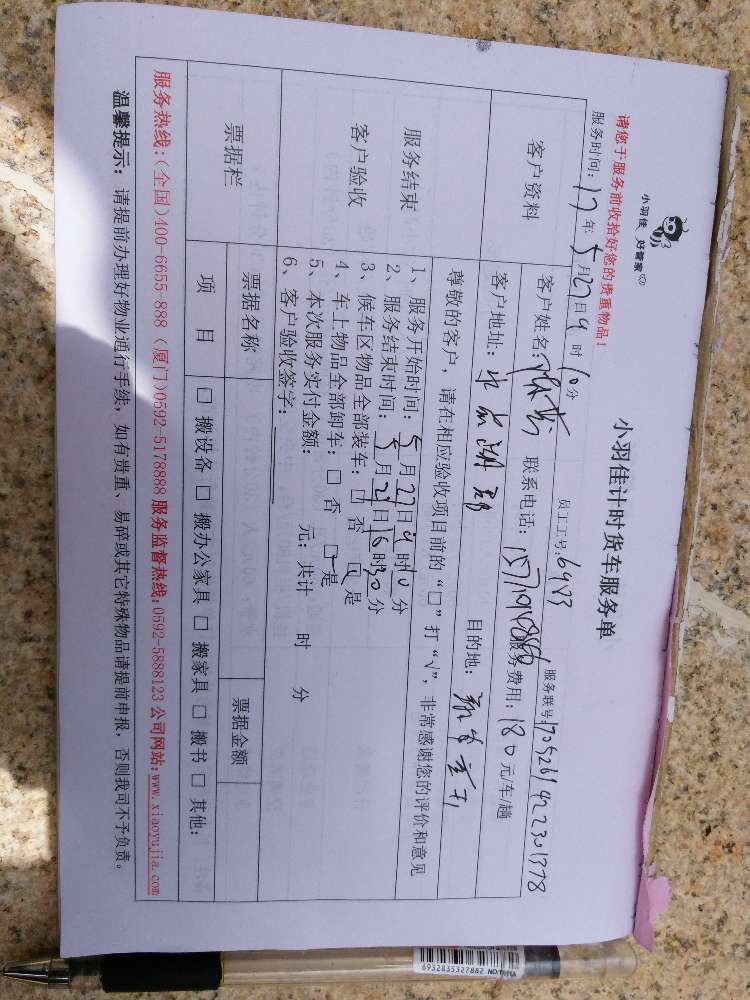 小羽佳 好管家
小羽佳计时货车服务单
请您于服务前收拾好您的贵重物品！
员工工号：6983
服务时间：17年5月27日9时10分
服务联号
客户资料
客户姓名：
联系电话：
服务费用：180元/车/趟
客户地址：
目的地：
服务结束
客户验收
尊敬的客户，请在相应验收项目前的“□”打“√”，非常感谢您的评价和意见
1、服务开始时间：5月27日9时10分
2、服务结束时间：5月27日16时30分
3、候车区物品全部装车：□ 否 □ 是
4、车上物品全部卸车：□ 否 □ 是
5、本次服务实付金额： 元；共计 时 分
6、客户验收签字：
票据栏
票据名称
票据金额
项 目
□ 搬设备 □ 搬办公家具 □ 搬家具 □ 搬书 □ 其他：
服务热线：(全国)400-6655-888 (厦门)0592-5178888 服务监督热线：0592-5888123 公司网站：www.xiaoyujia.com
温馨提示：请提前办理好物业通行手续，如有贵重、易碎或其它特殊物品请提前申报，否则我司不予负责。
6932835327882